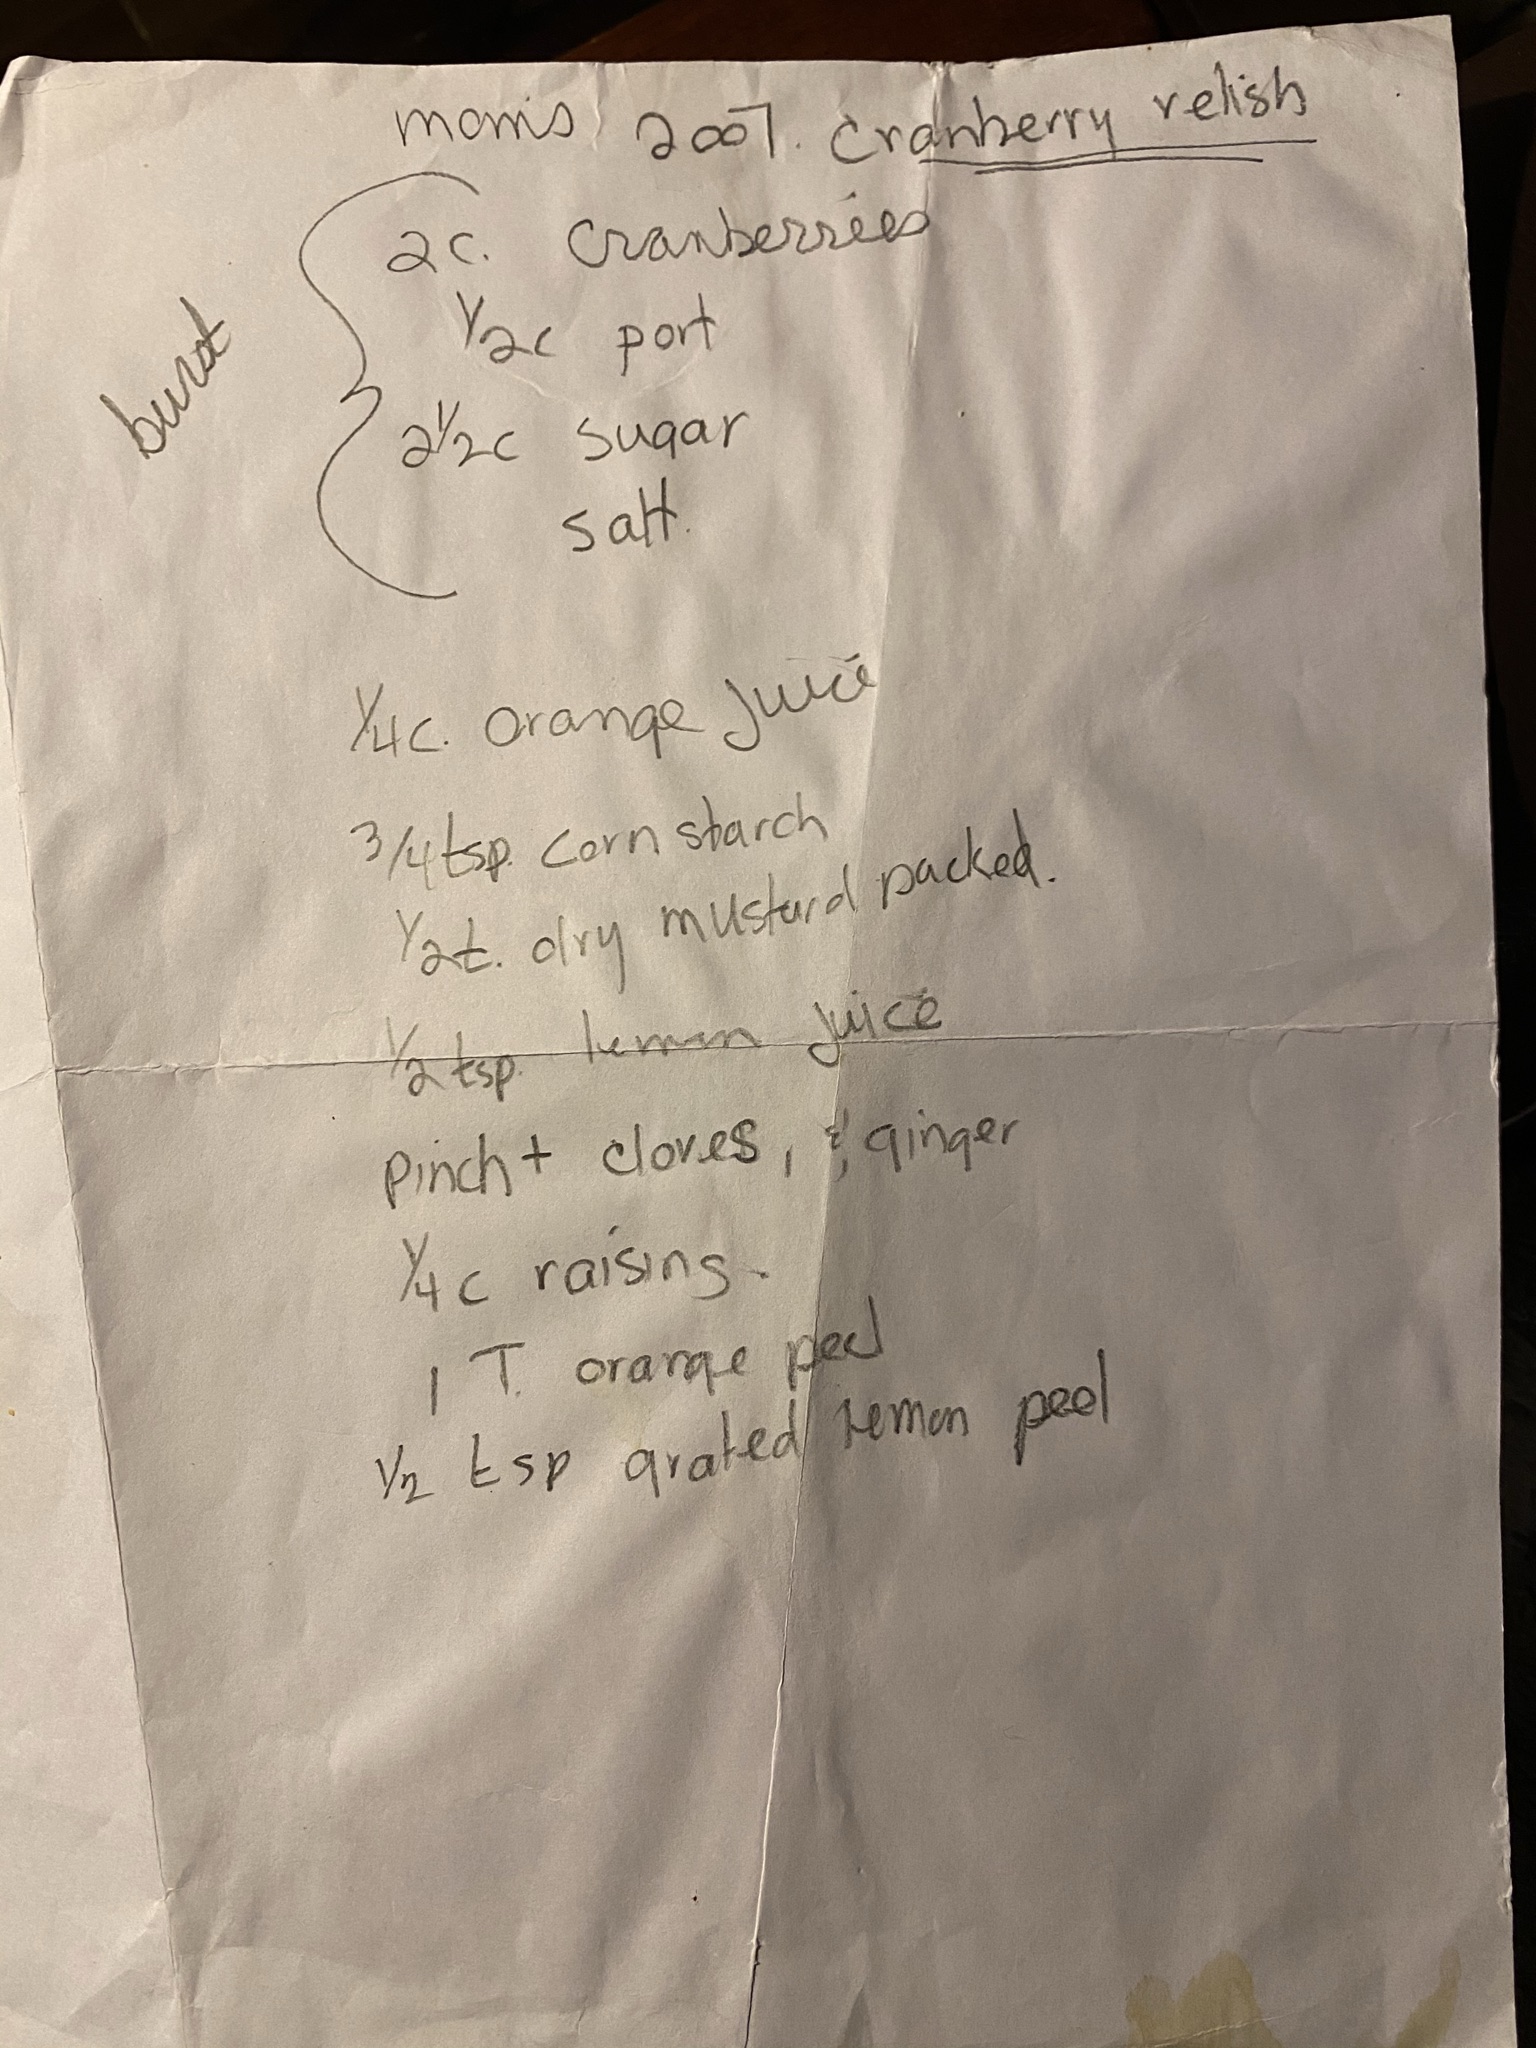 moms 2007. Cranberry relish
burst
2c. cranberries
1/2c port
2 1/2c sugar
salt.
1/4c. orange juice
3/4 tsp. corn starch
1/2 t. dry mustard packed.
1/2 tsp. lemon juice
pinch + cloves, & ginger
1/4 c raising.
1 T. orange peel
1/2 tsp grated lemon peel